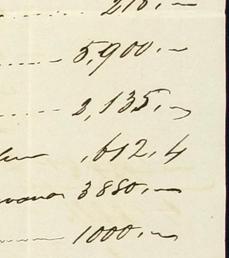 210,—
5,900,—
3,135,—
,612,4
3880,—
1000,—